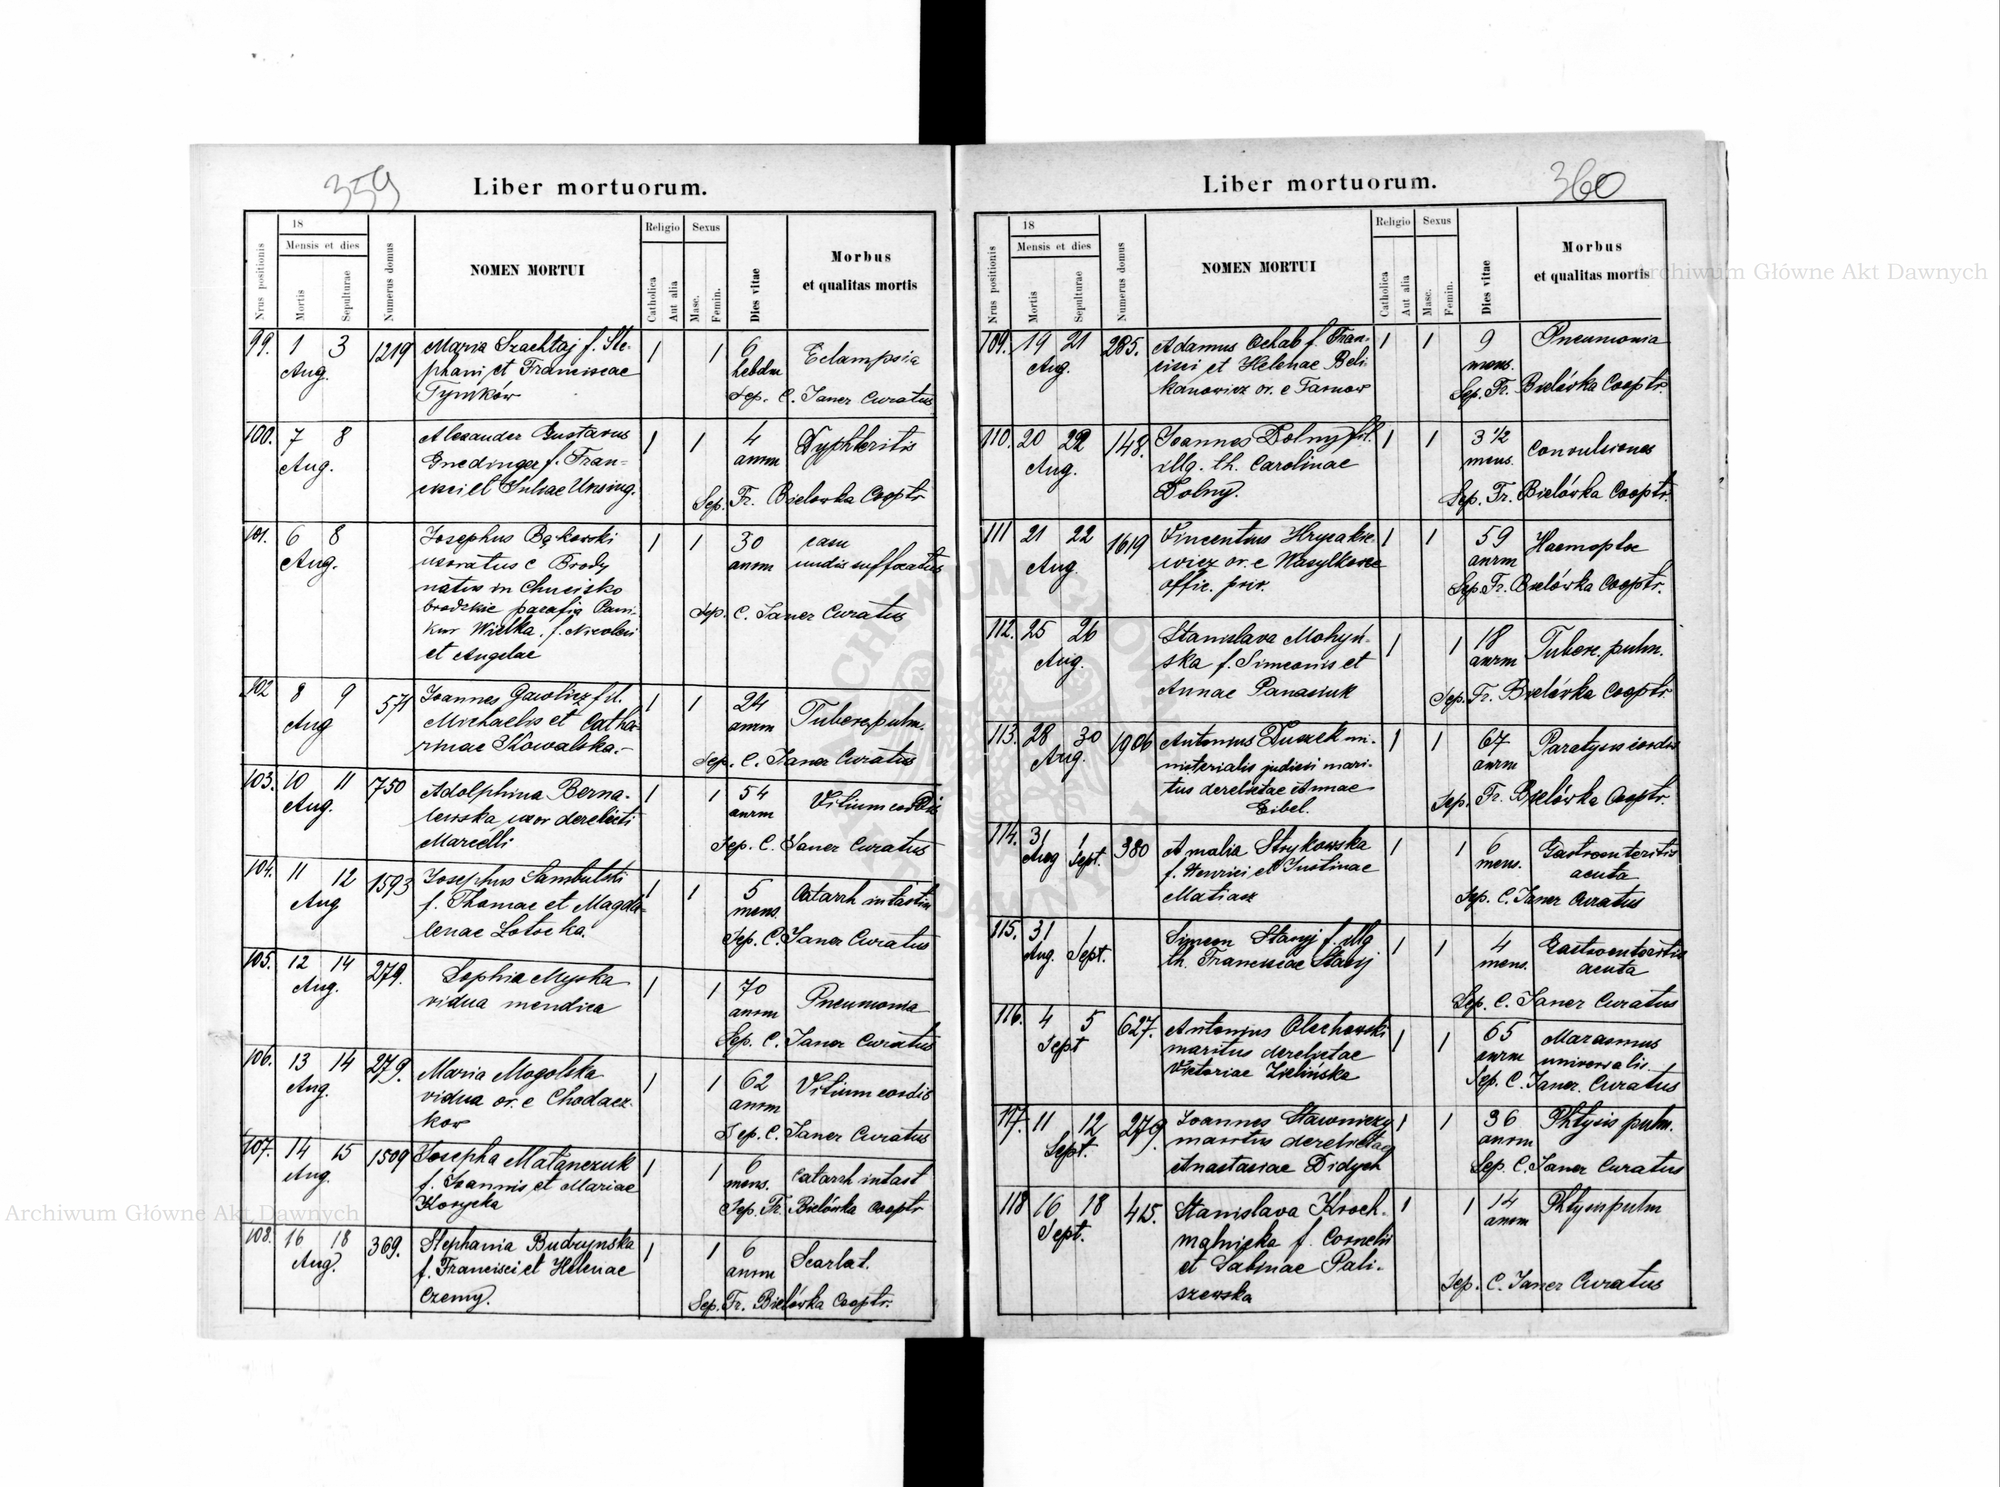 359
Liber mortuorum.
Nrus positionis
18
Mensis et dies
Mortis
Sepulturae
Numerus domus
NOMEN MORTUI
Religio
Catholica
Aut alia
Sexus
Masc.
Femin.
Dies vitae
Morbus
et qualitas mortis
99. 1 3 1219 Maria Szachtaj f. Ste- 1 1 6 Eclampsia
Aug. phani et Franciscae hebdm
Tymków Sep. C. Janer Curatus
100. 7 8 Alexander Gustavus 1 1 4 Dyphteritis
Aug. Gnedinger f. Fran- annm
cisci et Juliae Unsing. Sep. Fr. Bielowka Cooptr
101. 6 8 Josephus Bąkowski 1 1 30 casu
Aug. uxoratus e Brody annm undis suffocatus
natus in Chucisko
brodzkie parafia Pani- Sep. C. Janer Curatus
kur Wielka. f. Nicolai
et Angelae
102 8 9 571 Joannes Gawlicz fil. 1 1 24 Tuberc. pulm.
Aug Michaelis et Catha- annm
rinae Kowalska.- Sep. C. Janer Curatus
103. 10 11 750 Adolphina Berna- 1 1 54 Vitium cordis
Aug. lewska uxor derelicti annm
Marcelli Sep. C. Janer Curatus
104. 11 12 1593 Josephus Sambulski 1 1 5 Catarrh intestin
Aug f. Thomae et Magda- mens.
lenae Łotocka. Sep. C. Janer Curatus
105. 12 14 279. Sophia Myska 1 1 70 Pneumonia
Aug. vidua mendica annm
Sep. C. Janer Curatus
106. 13 14 279. Maria Mogolska 1 1 62 Vitium cordis
Aug. vidua or. e Chodacz- annm
kow Sep. C. Janer Curatus
107. 14 15 1509 Josepha Matanczuk 1 1 6 Catarrh intest
Aug. f. Joannis et Mariae mens.
Korycka Sep. Fr. Bielówka Cooptr
108. 16 18 369. Stephania Budzynska 1 1 6 Scarlat.
Aug. f. Francisci et Helenae annm
Czerny. Sep. Fr. Bielówka Cooptr.
360
Liber mortuorum.
Nrus positionis
18
Mensis et dies
Mortis
Sepulturae
Numerus domus
NOMEN MORTUI
Religio
Catholica
Aut alia
Sexus
Masc.
Femin.
Dies vitae
Morbus
et qualitas mortis
109. 19 21 285. Adamus Ochab f. Fran- 1 1 9 Pneumonia
Aug. cisci et Helenae Beli- mens.
kanowicz or. e Tarnow Sep. Fr. Bielówka Cooptr.
110. 20 22 148. Joannes Dolny fil. 1 1 3 1/2 Convulsiones
Aug. illg. th. Carolinae mens.
Dolny. Sep. Fr. Bielówka Cooptr.
111 21 22 1619 Vincentius Hrycakie- 1 1 59 Haemoptoe
Aug wicz or. e Wasylkowce annm
offic. priv. Sep. Fr. Bielówka Cooptr.
112. 25 26 Stanislava Mohyń- 1 1 18 Tuberc. pulm.
Aug. ska f. Simeonis et annm
Annae Panasiuk Sep. Fr. Bielówka Cooptr
113. 28 30 1906 Antonius Duszek mi- 1 1 67 Paralysis cordis
Aug. nisterialis judicii mari- annm
tus derelictae Annae Sep. Fr. Bielówka Cooptr.
Eibel.
114. 31 1 380 Amalia Strykowska 1 1 6 Gastroenteritis
Aug Sept. f. Henrici et Justinae mens. acuta
Matiasz Sep. C. Janer Curatus
115. 31 1 Simeon Stasyj f. illg 1 1 4 Gastroenteritis
Aug. Sept. th. Franciscae Stasyj mens. acuta
Sep. C. Janer Curatus
116. 4 5 627. Antonius Olechowski 1 1 65 Marasmus
Sept maritus derelictae annm universalis.
Victoriae Zielińska Sep. C. Janer. Curatus
117. 11 12 279. Joannes Stawniczy 1 1 36 Phtysis pulm.
Sept. maritus derelictae annm
Anastasiae Didych Sep. C. Janer Curatus
118 16 18 415. Stanislava Kroch- 1 1 14 Phtysis pulm
Sept. malnicka f. Cornelii annm
et Sabinae Pali- Sep. C. Janer Curatus
szewska
Archiwum Główne Akt Dawnych
Archiwum Główne Akt Dawnych